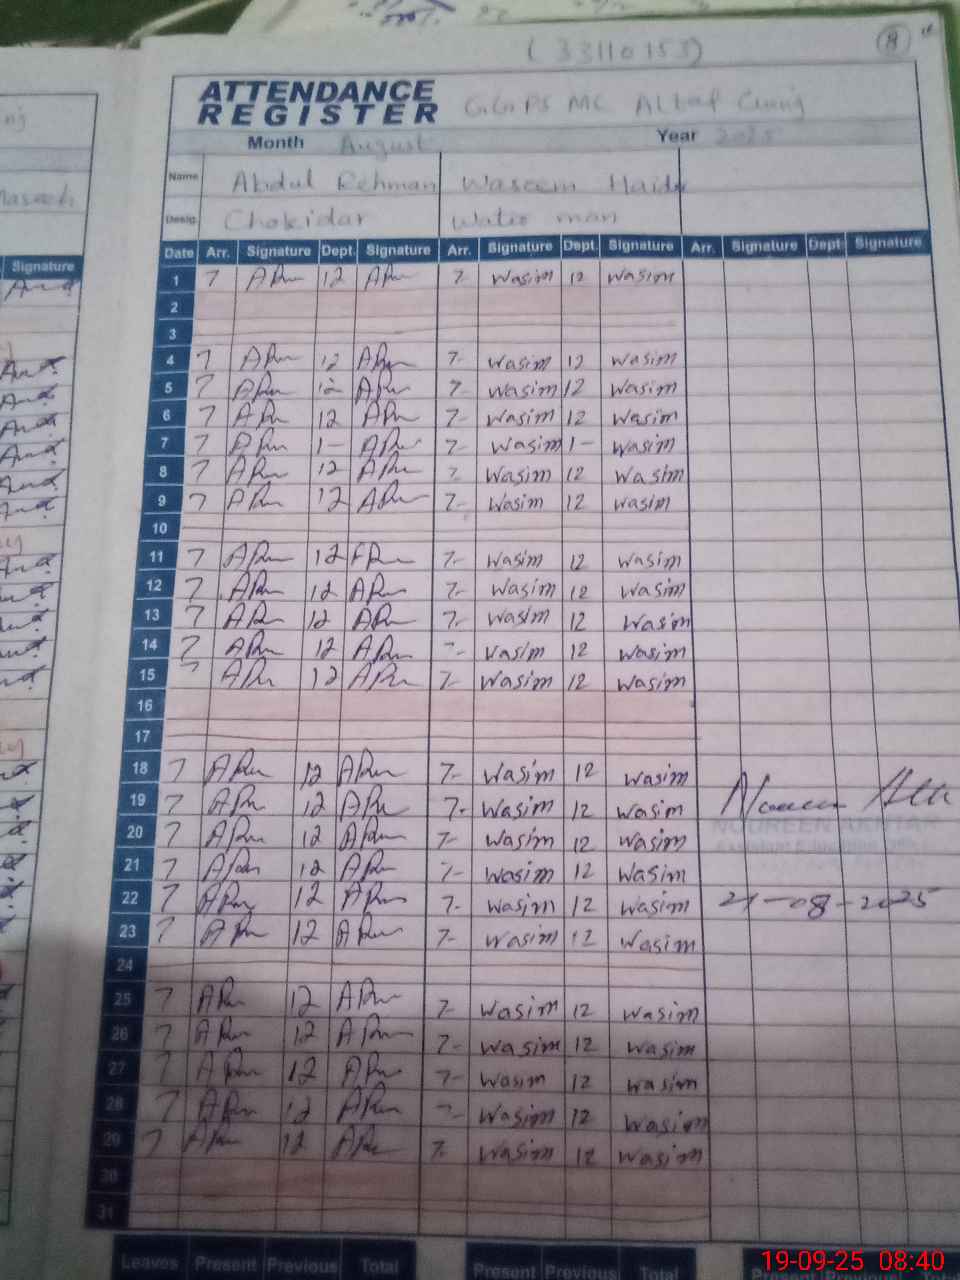 (33110153)
8
ATTENDANCE
REGISTER
GGPS MC Altaf Gunj
Month August Year 2025
Name Abdul Rehman Waseem Haider
Desig. Chokidar Water man
Signature Date Arr. Signature Dept. Signature Arr. Signature Dept. Signature Arr. Signature Dept. Signature
1 7 ARm 12 ARm 7- Wasim 12 Wasim
2
3
4 7 ARm 12 ARm 7- Wasim 12 Wasim
5 7 ARm 12 ARm 7- Wasim 12 Wasim
6 7 ARm 12 ARm 7- Wasim 12 Wasim
7 7 ARm 1- ARm 7- Wasim 1- Wasim
8 7 ARm 12 ARm 7- Wasim 12 Wasim
9 7 ARm 12 ARm 7- Wasim 12 Wasim
10
11 7 ARm 12 ARm 7- Wasim 12 Wasim
12 7 ARm 12 ARm 7- Wasim 12 Wasim
13 7 ARm 12 ARm 7- Wasim 12 Wasim
14 7 ARm 12 ARm 7- Wasim 12 Wasim
15 7 ARm 12 ARm 7- Wasim 12 Wasim
16
17
18 7 ARm 12 ARm 7- Wasim 12 Wasim
19 7 ARm 12 ARm 7- Wasim 12 Wasim
NOUREEN AKHTAR
20 7 ARm 12 ARm 7- Wasim 12 Wasim
21 7 ARm 12 ARm 7- Wasim 12 Wasim
22 7 ARm 12 ARm 7- Wasim 12 Wasim 21-08-2025
23 7 ARm 12 ARm 7- Wasim 12 Wasim
24
25 7 ARm 12 ARm 7- Wasim 12 Wasim
26 7 ARm 12 ARm 7- Wasim 12 Wasim
27 7 ARm 12 ARm 7- Wasim 12 Wasim
28 7 ARm 12 ARm 7- Wasim 12 Wasim
29 7 ARm 12 ARm 7- Wasim 12 Wasim
30
31
Leaves Present Previous Total Present Previous Total
19-09-25 08:40